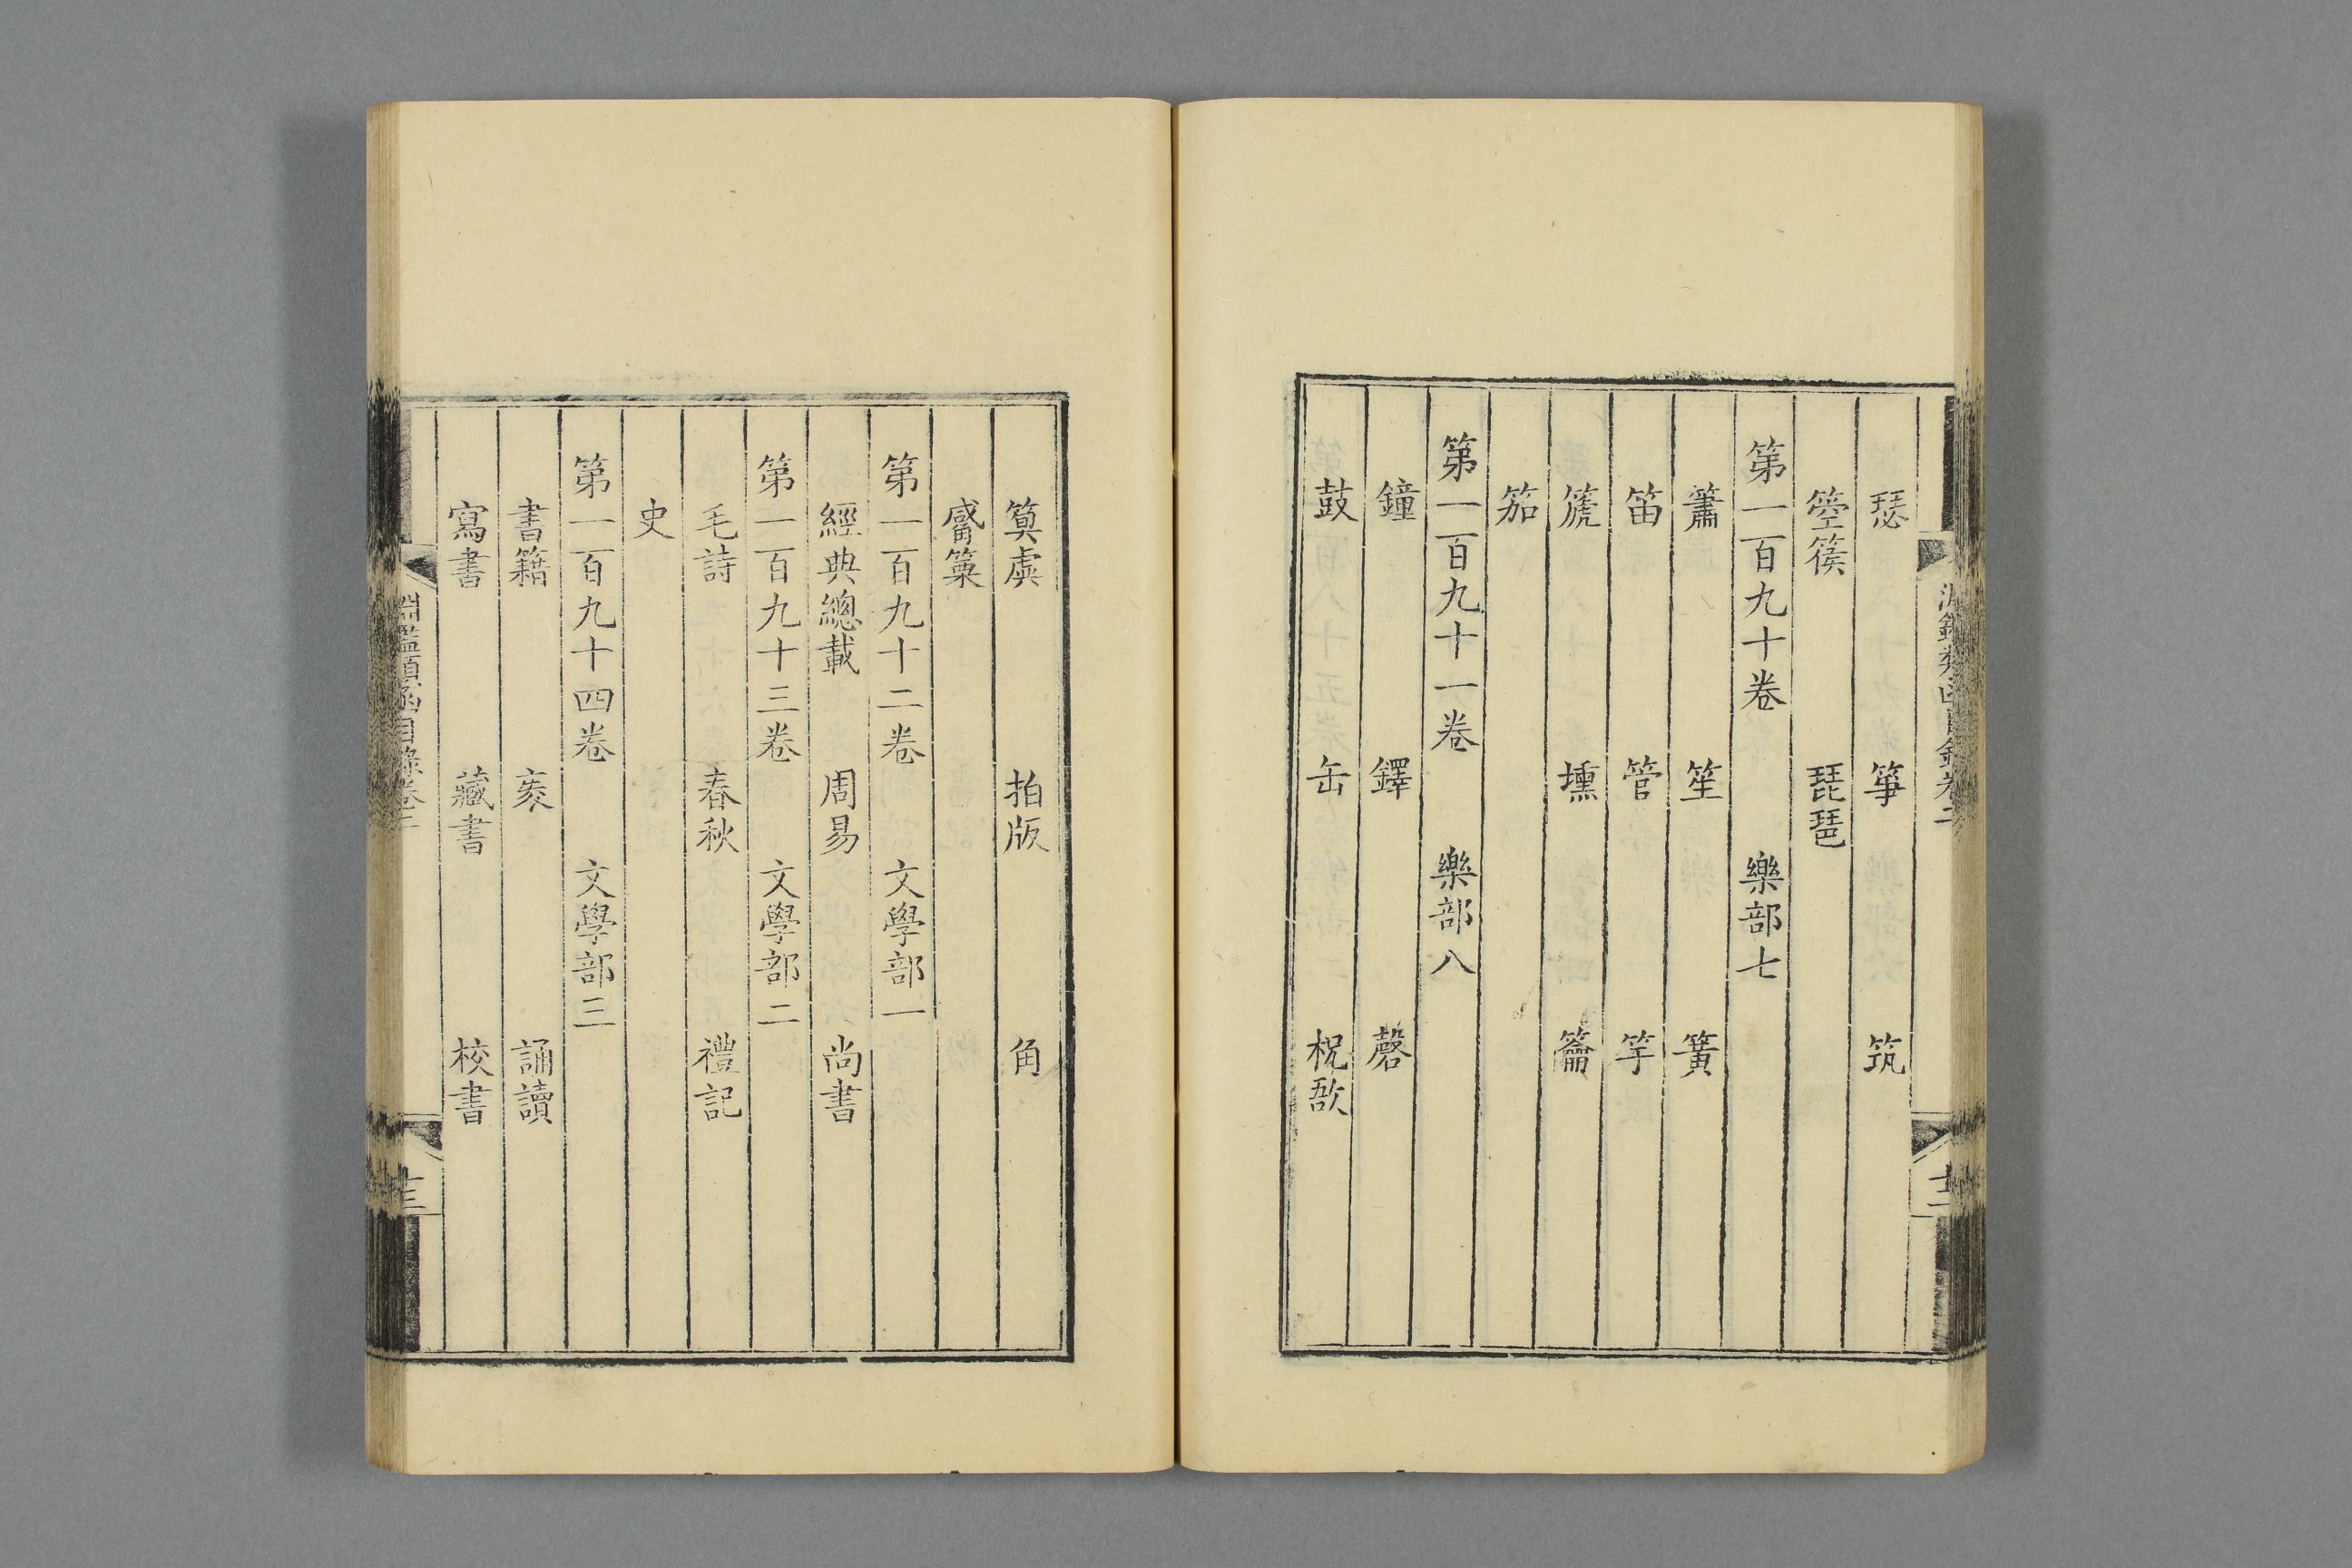 瑟 箏 筑
箜篌 琵琶
第一百九十卷 樂部七
簫 笙 簧
笛 管 竽
篪 壎 籥
笳
第一百九十一卷 樂部八
鐘 鐸 磬
鼓 缶 柷敔
簨虡 拍版 角
觱篥
第一百九十二卷 文學部一
經典總載 周易 尚書
第一百九十三卷 文學部二
毛詩 春秋 禮記
史
第一百九十四卷 文學部三
書籍 誦讀
寫書 藏書 校書
淵鑑類函目錄卷二